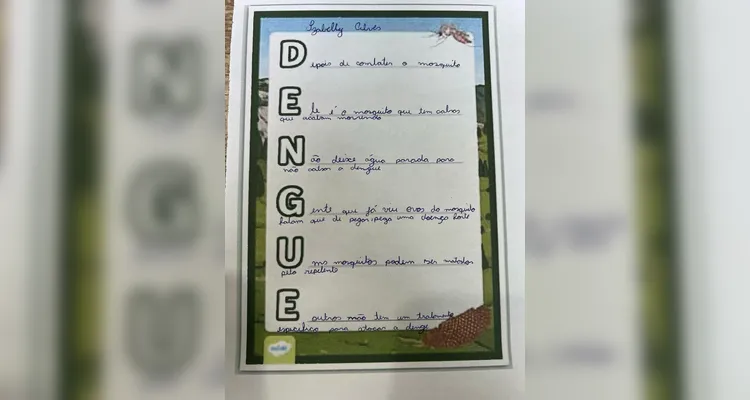 Izabelly
Depois de combater o mosquito
Ele é o mosquito que tem
que acabam morrendo
Não deixe água parada para
não a dengue
Gente que já viu ovos do mosquito
falam que de pegar pega uma doença forte
Ums mosquitos podem ser mortos
pelo repelente
E outros não tem um tratamento
especifico para atacar a denge